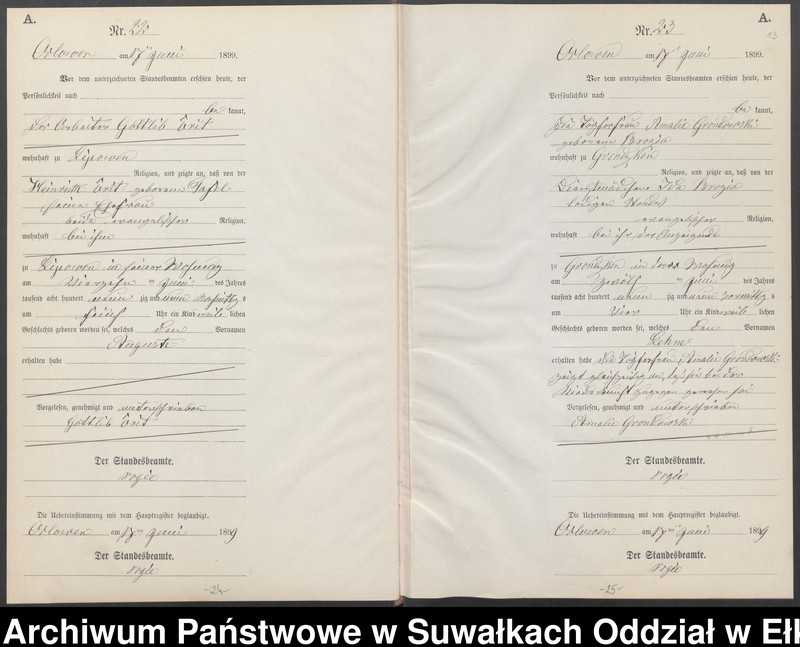 A.
Nr. 22
Orlowen am 17ten Juni 1899.
Vor dem unterzeichneten Standesbeamten erschien heute, der
Persönlichkeit nach
be kannt,
der Arbeiter Gottlib
wohnhaft zu Lipowen
Religion, und zeigte an, daß von der
geborenen
seine Ehefrau
beide evangelischer Religion,
wohnhaft bei ihm
zu Lipowen in seiner Wohnung
am Vierzehn ten Juni des Jahres
tausend acht hundert neun zig und neun Vormittags
um Uhr ein Kind weib lichen
Geschlechts geboren worden sei, welches den Vornamen
Auguste
erhalten habe
Vorgelesen, genehmigt und unterschrieben
Gottlib
Der Standesbeamte.
Die Uebereinstimmung mit dem Hauptregister beglaubigt.
Orlowen am 17ten Juni 1899
Der Standesbeamte.
-24-
A.
13
Nr. 23
Orlowen am 17ten Juni 1899.
Vor dem unterzeichneten Standesbeamten erschien heute, der
Persönlichkeit nach
be kannt,
die Amalie Gronkowski
geborene Brozio
wohnhaft zu Gronsken
Religion, und zeigte an, daß von der
Dienstmädchen Ida Brozio
ledigen Standes
evangelischer Religion,
wohnhaft bei ihr der Anzeigende
zu Gronsken in deren Wohnung
am zwölf ten Juni des Jahres
tausend acht hundert neun zig und neun Vormittags
um vier Uhr ein Kind weib lichen
Geschlechts geboren worden sei, welches den Vornamen
erhalten habe die Amalie Gronkowski
zeigt gleichzeitig an, daß sie bei der
Niederkunft zugegen gewesen sei
Vorgelesen, genehmigt und unterschrieben
Amalie Gronkowski
Der Standesbeamte.
Die Uebereinstimmung mit dem Hauptregister beglaubigt.
Orlowen am 17ten Juni 1899
Der Standesbeamte.
-25-
Archiwum Państwowe w Suwałkach Oddział w Eł